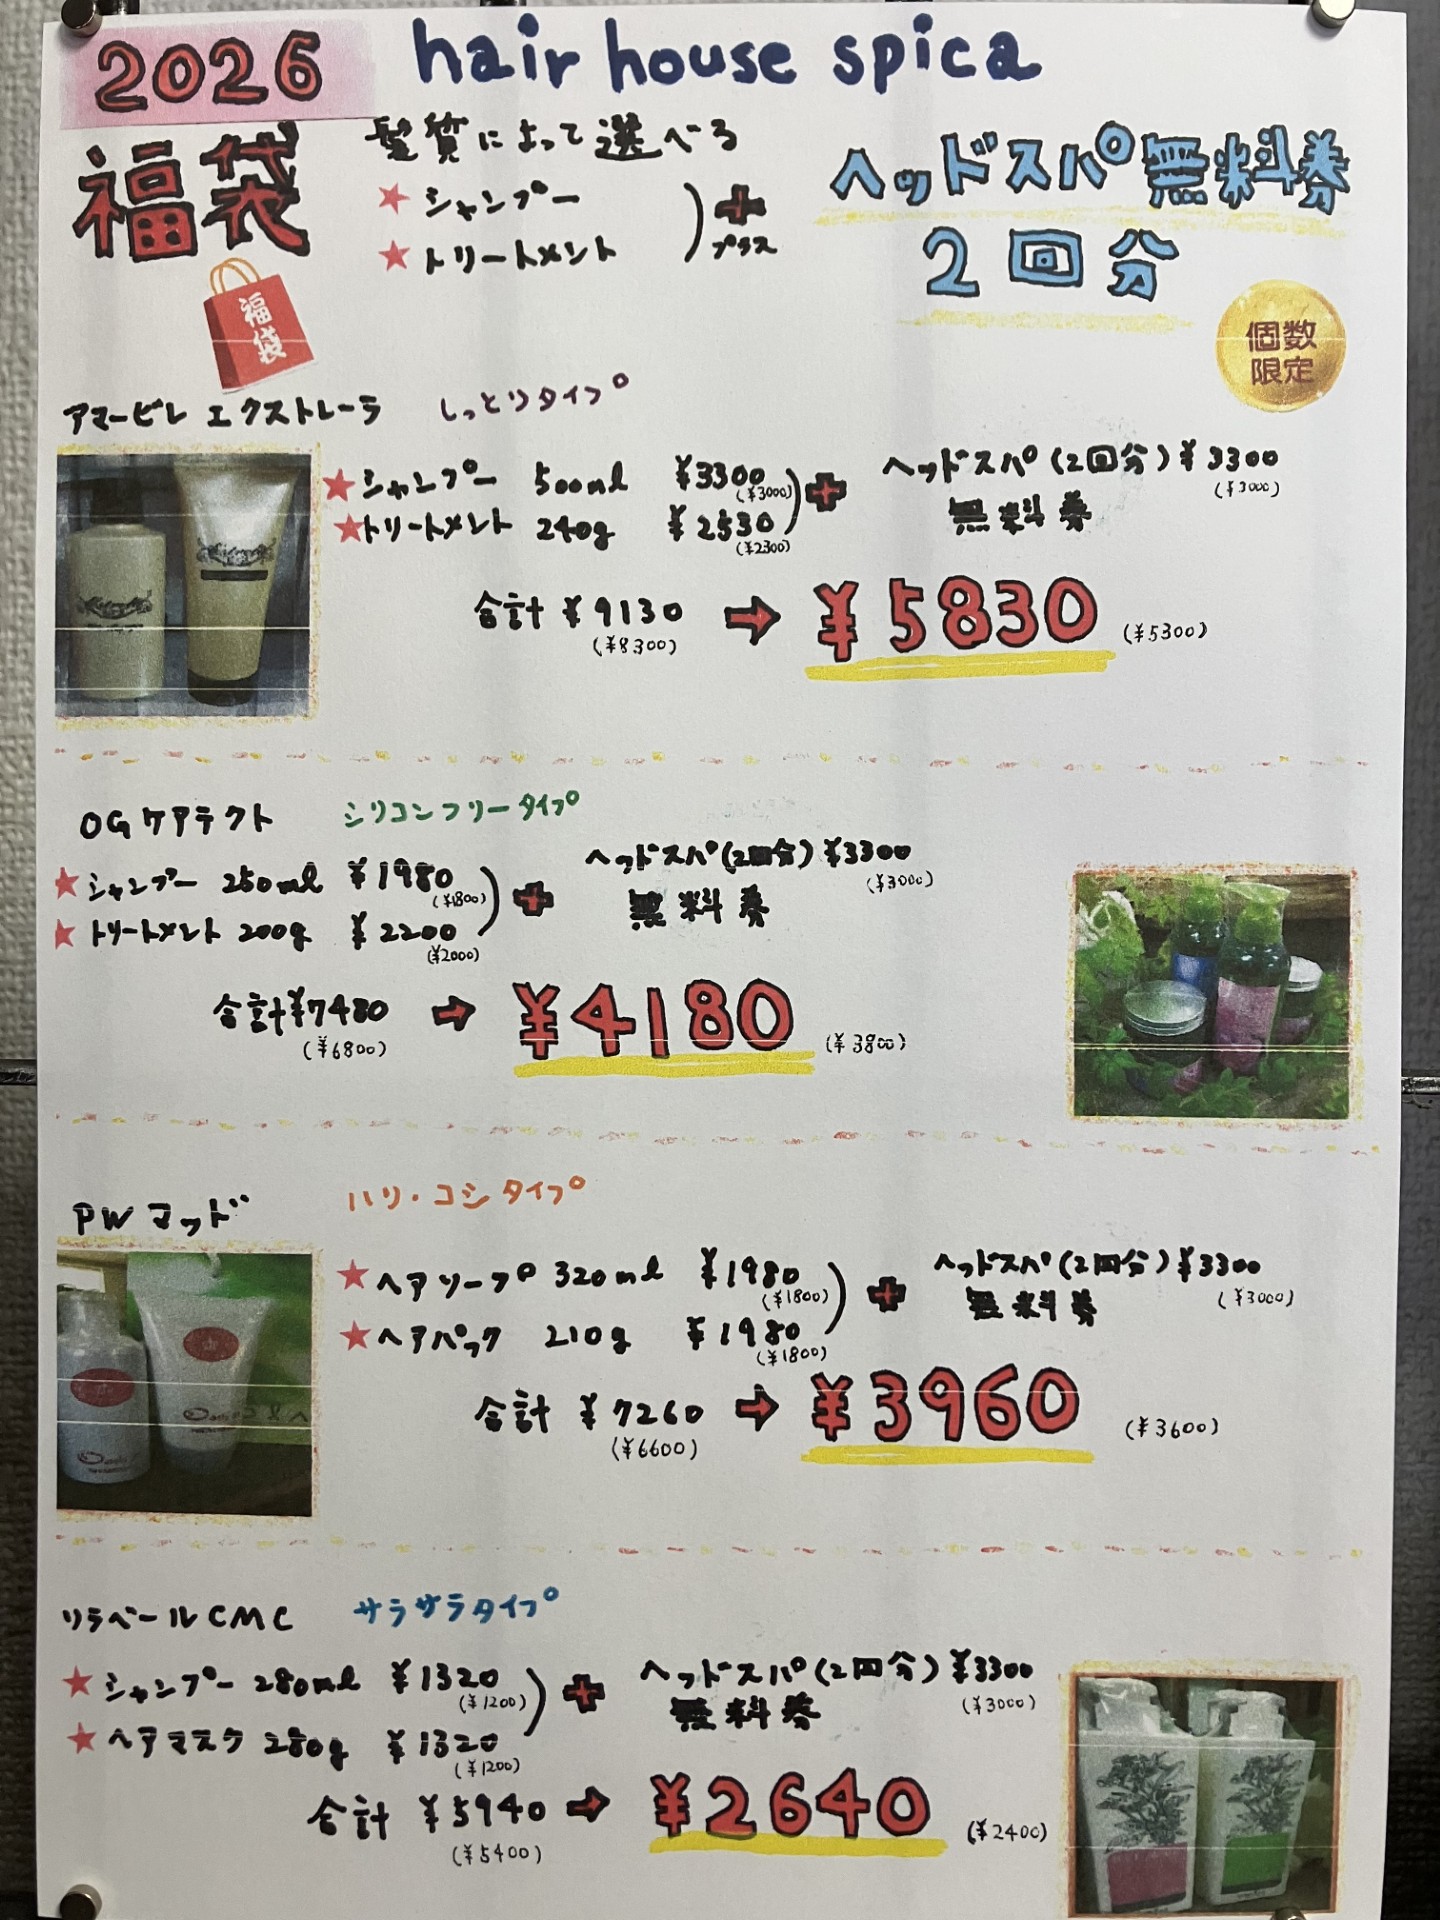 2026
hair house spica
福袋
髪質によって選べる
★ シャンプー
★ トリートメント
プラス
ヘッドスパ無料券
2回分
福袋
個数
限定
アマービレ エクストレーラ しっとりタイプ
★シャンプー 500ml ¥3300
(¥3000)
★トリートメント 240g ¥2530
(¥2300)
ヘッドスパ(2回分)¥3300
(¥3000)
無料券
合計 ¥9130 → ¥5830 (¥5300)
(¥8300)
OGケアテクト シリコンフリータイプ
★シャンプー 250ml ¥1980
(¥1800)
★トリートメント 200g ¥2200
(¥2000)
ヘッドスパ(2回分)¥3300
(¥3000)
無料券
合計¥7480 → ¥4180 (¥3800)
(¥6800)
PWマッド ハリ・コシタイプ
★ヘアソープ 320ml ¥1980
(¥1800)
★ヘアパック 210g ¥1980
(¥1800)
ヘッドスパ(2回分)¥3300
(¥3000)
無料券
合計 ¥7260 → ¥3960 (¥3600)
(¥6600)
リラベールCMC サラサラタイプ
★シャンプー 280ml ¥1320
(¥1200)
★ヘアマスク 280g ¥1320
(¥1200)
ヘッドスパ(2回分)¥3300
(¥3000)
無料券
合計 ¥5940 → ¥2640 (¥2400)
(¥5400)